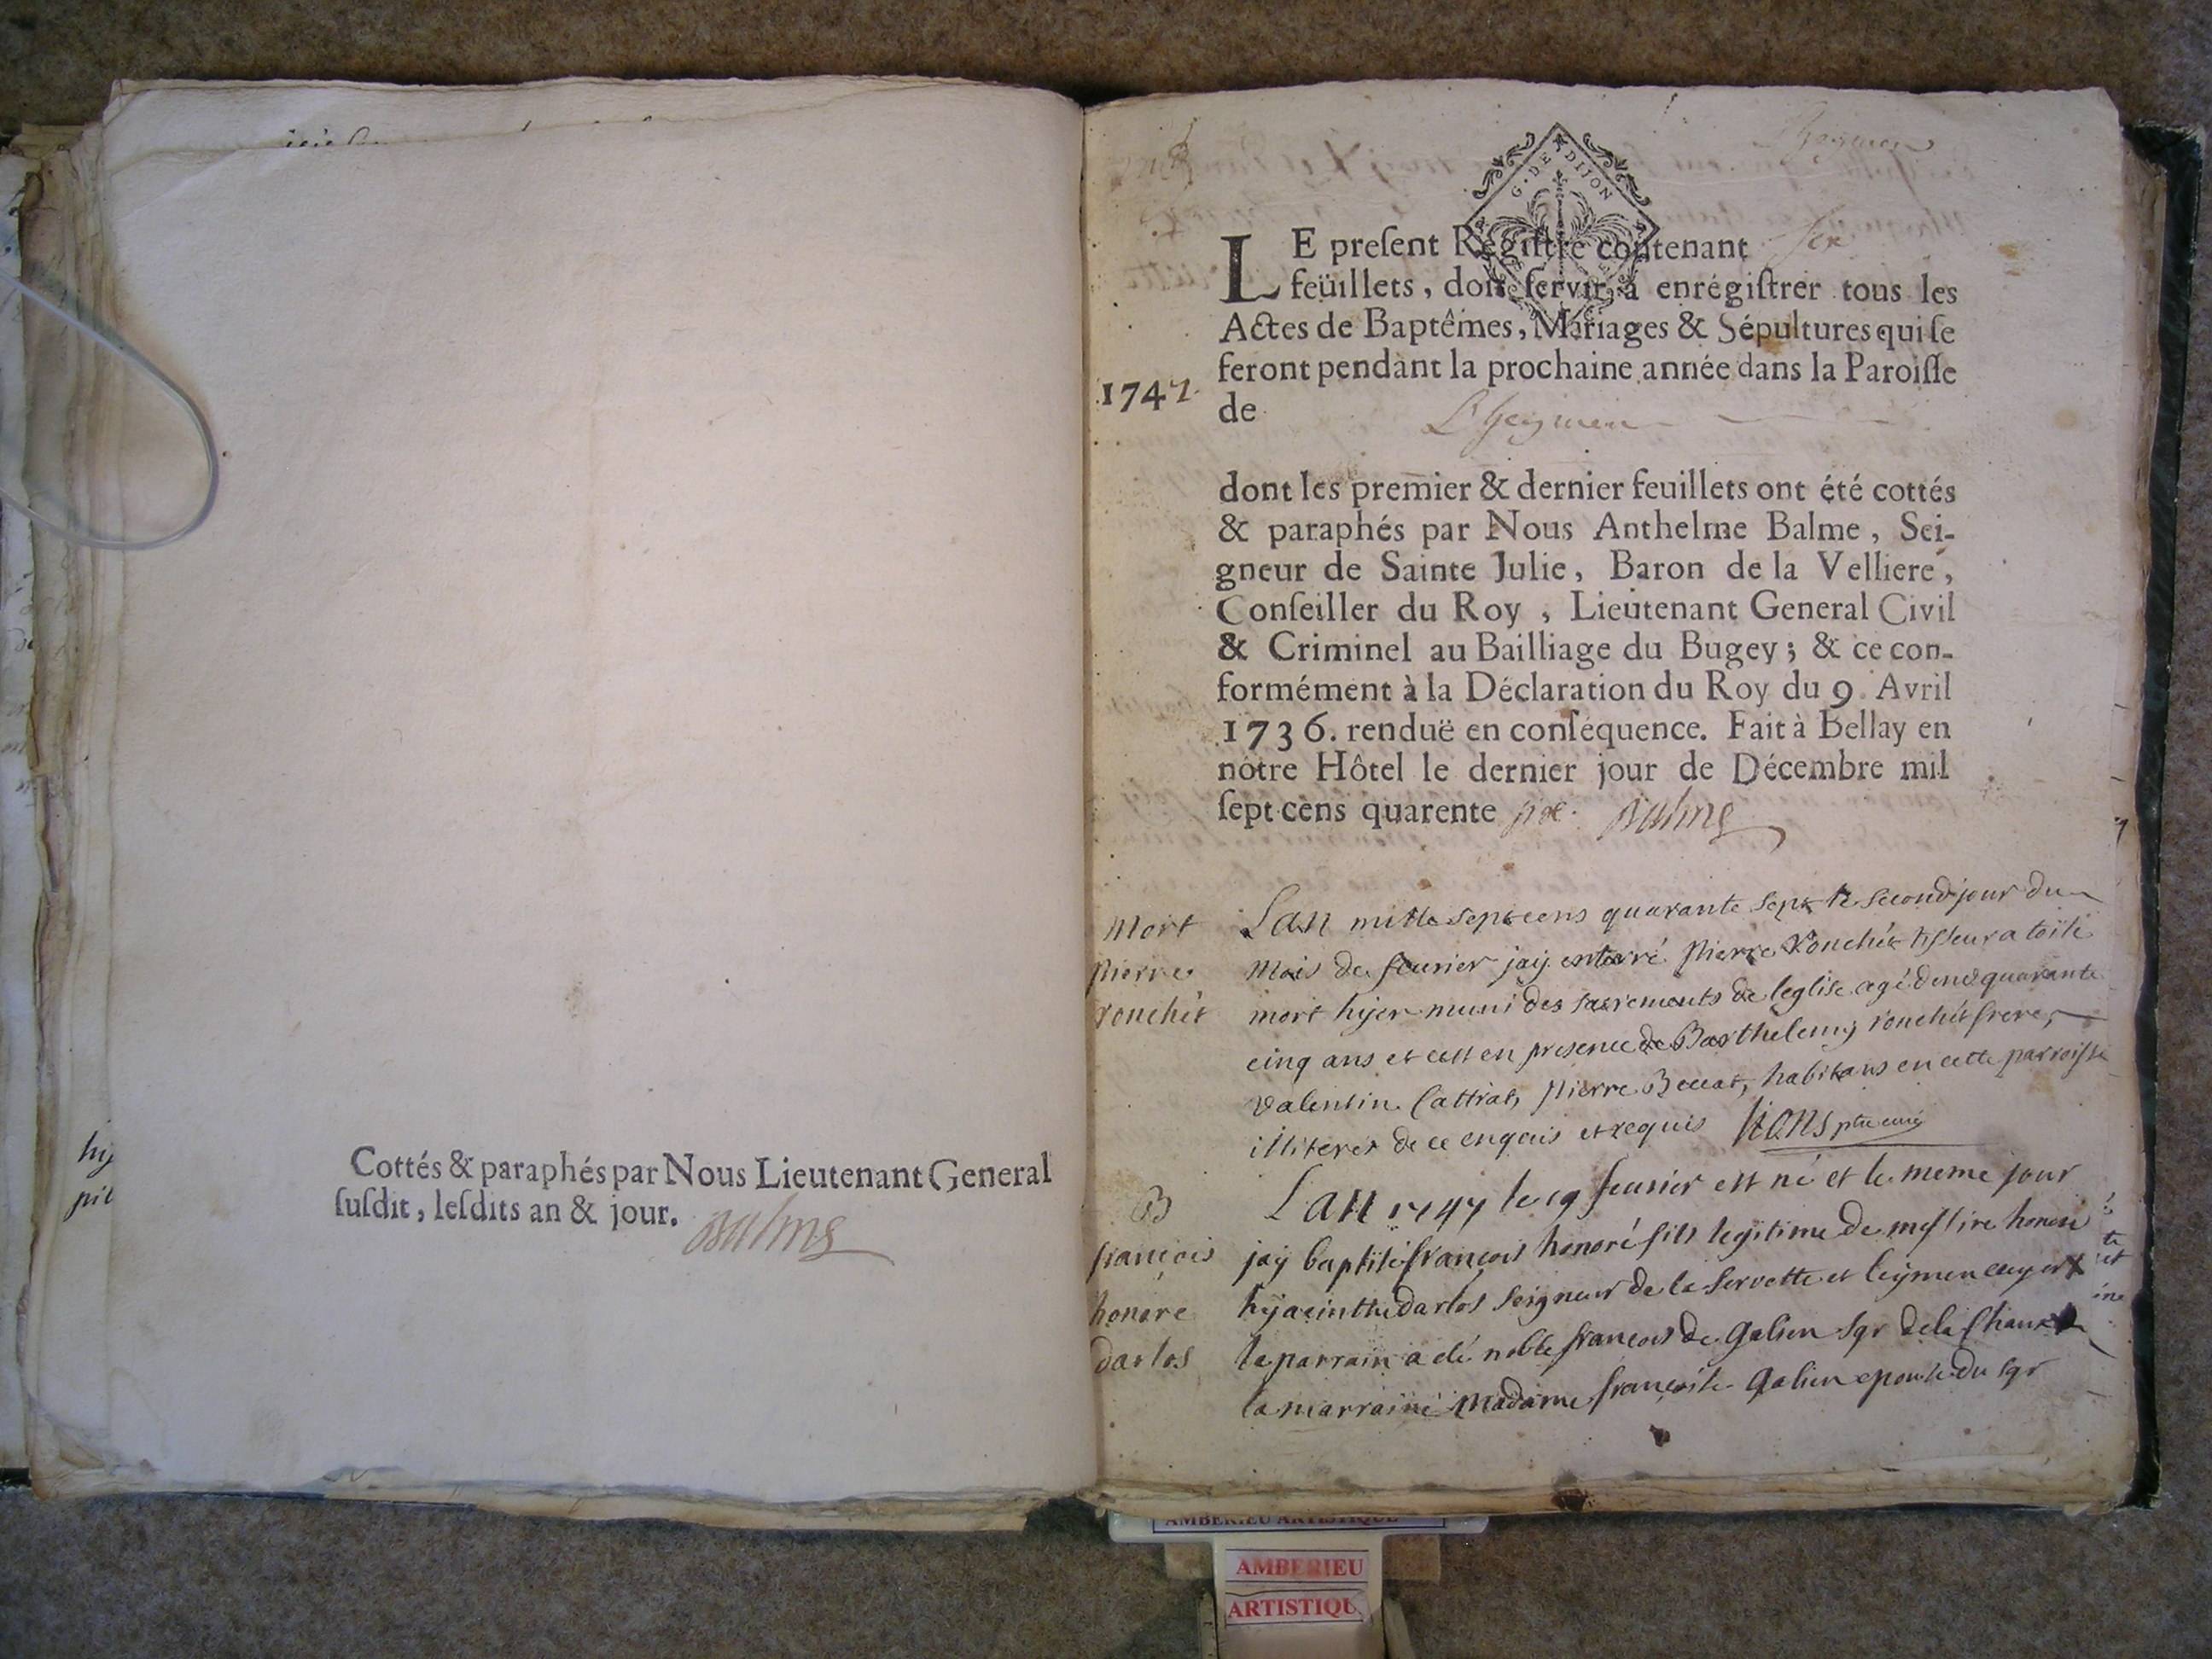 Cottés & paraphés par Nous Lieutenant General
ſuſdit, leſdits an & jour. Balme
G. DE DIJON
Leymen
LE preſent Regiſtre contenant six
feüillets, doit ſervir, à enrégiſtrer tous les
Actes de Baptêmes, Mariages & Sépultures qui ſe
feront pendant la prochaine année dans la Paroiſſe
1747
de Lheymen
dont les premier & dernier feuillets ont été cottés
& paraphés par Nous Anthelme Balme, Sei-
gneur de Sainte Julie, Baron de la Velliere,
Conſeiller du Roy, Lieutenant General Civil
& Criminel au Bailliage du Bugey; & ce con-
formément à la Déclaration du Roy du 9. Avril
1736. renduë en conſéquence. Fait à Bellay en
nôtre Hôtel le dernier jour de Décembre mil
ſept cens quarente six. Balme
Mort
pierre
ronchet
Lan mille sept cens quarante sept le second jour du
mois de feurier jaij enterré pierre Ronchet tisseur a toile
mort hijer muni des sacrements de leglise agé denv quarante
cinq ans et cest en presence de Barthelemy ronchet frere,
valentin Cattrat, pierre Beccat, habitans en cette parroisse
illiterés de ce enquis et requis ptre curé
B
françois
honore
darlos
Lan 1747 le 19 feurier est né et le meme jour
jaÿ baptisé françois honoré fils legitime de messire honoré
hÿacinthe darlos seigneur de la servette et leÿmen
le parrain a eté noble francois de galien sgr de la Chaux
la marraine Madame françoise galien epouse du sgr
hij
pit
te
et
ine
AMBERIEU ARTISTIQUE
AMBERIEU
ARTISTIQU